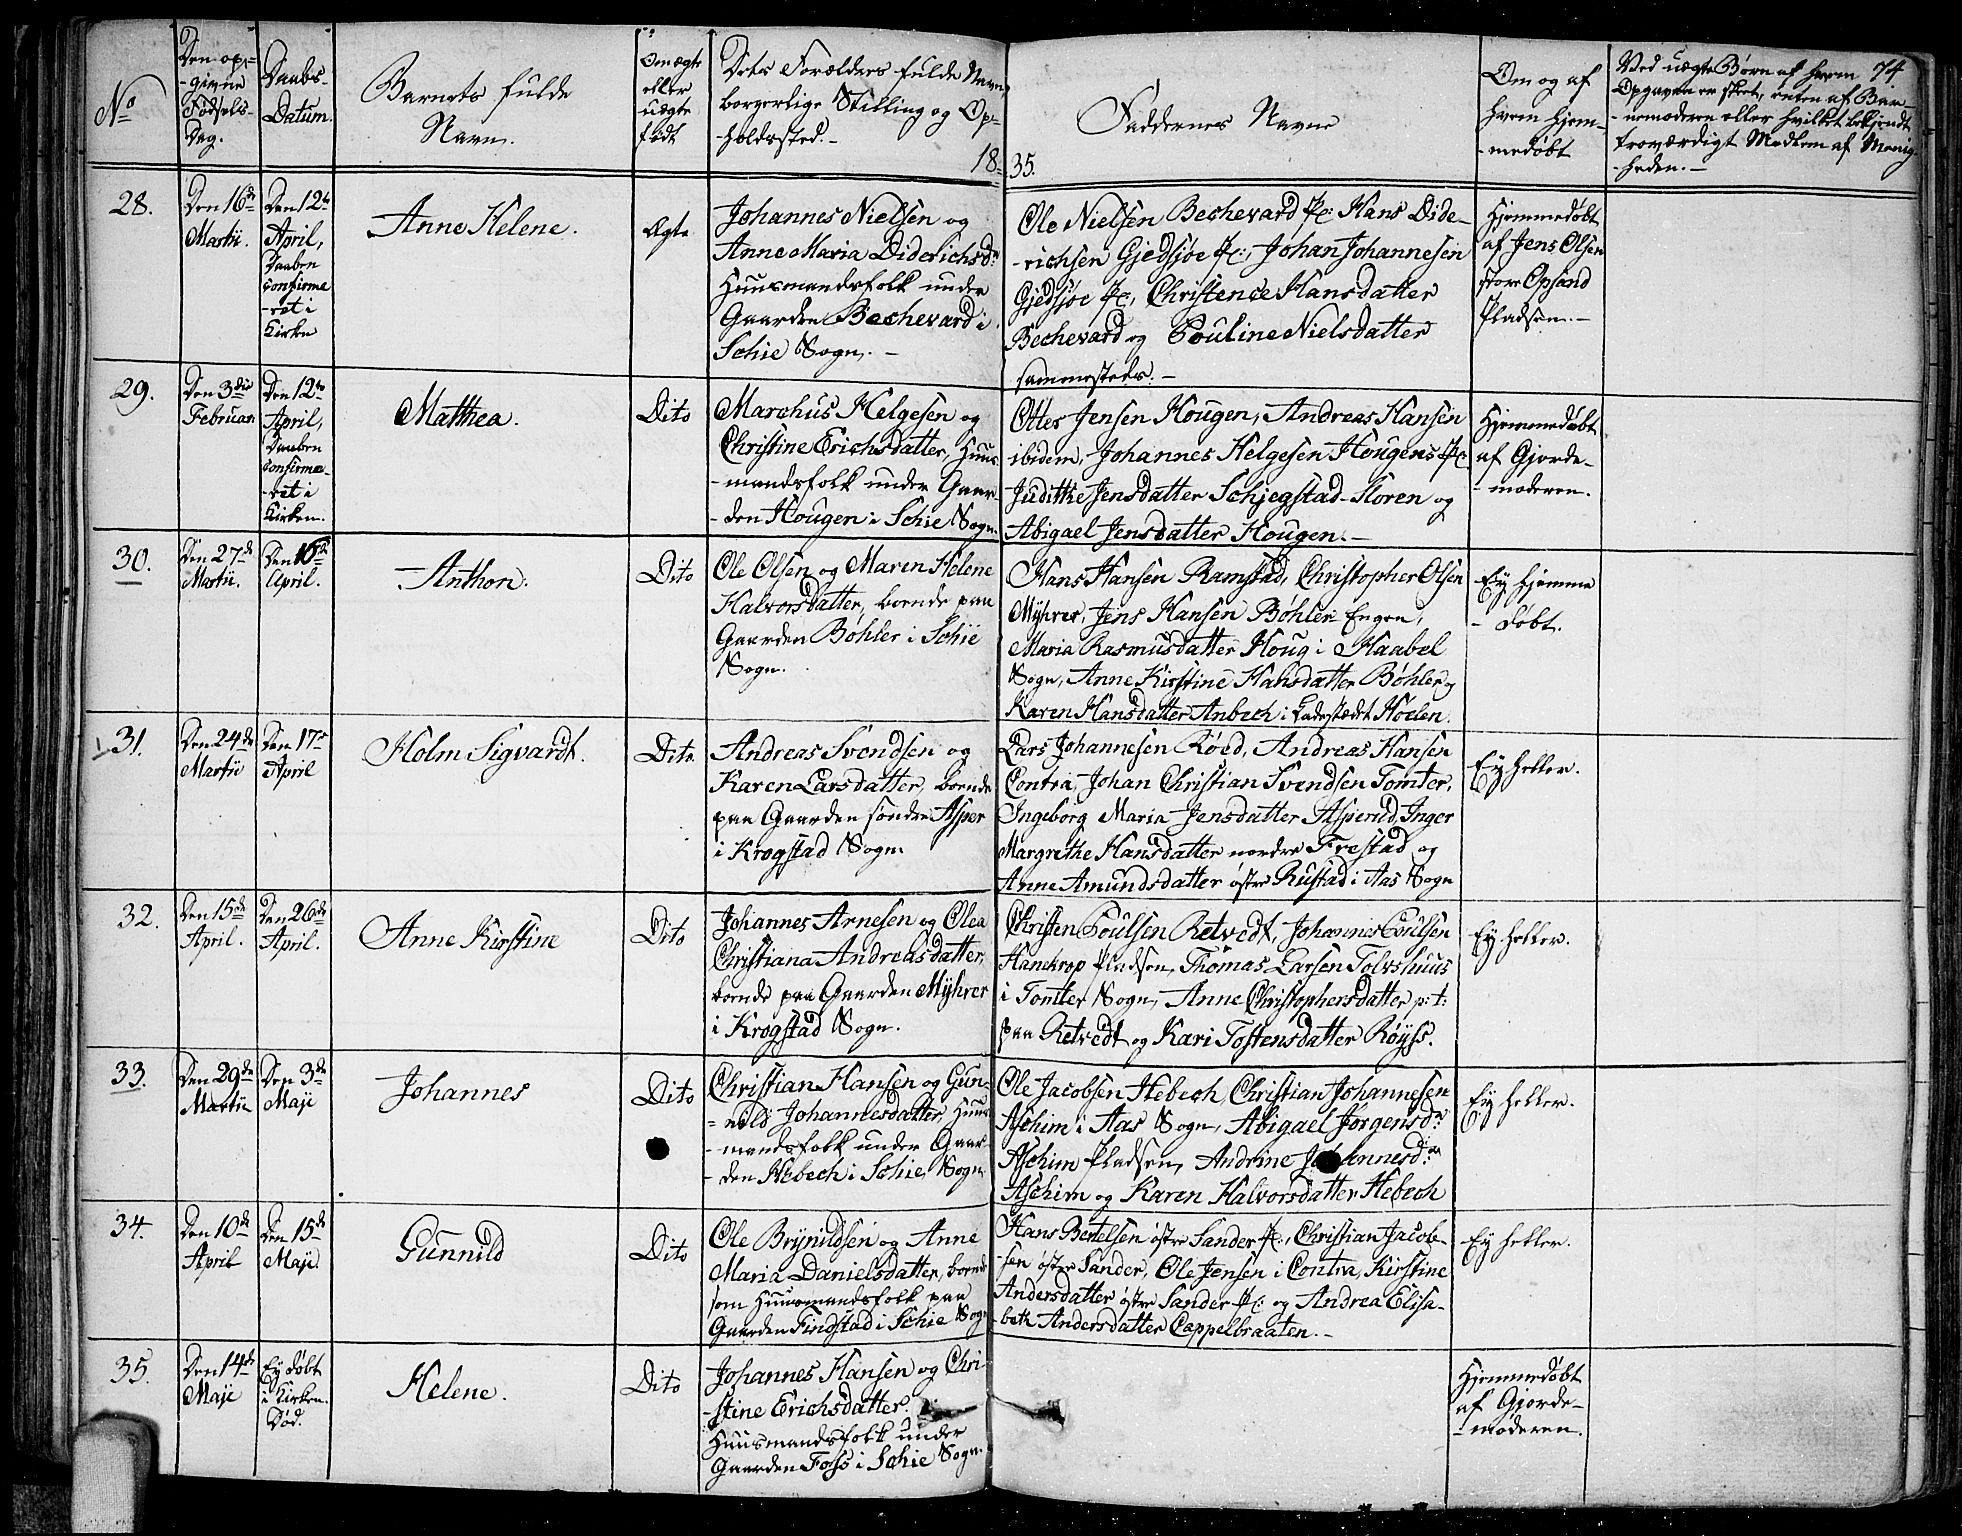 No
Den op-
-givne
Fødsels-
Dag.
Daabs-
Datum.
Barnets fulde
Navn.
Om ægte
eller
uægte
født
Dets Forældres fulde Navn,
borgerlige Stilling og Op-
-holdssted.-
18
35.
Faddernes Navne
Om og af
hvem hjem-
-medøbt
Ved uægte Børn af hvem 74
Opgaven er skeet, enten af Bar-
-nemoderen eller hvilket bekjendt
troværdigt Medlem af Menig-
-heden.-
28.
Den 16de
Martii.
Den 12te
April,
Daaben
confirme
-ret i
Kirke
Anne Helene.
Ægte
Johannes Nielsen og
Anne Maria Diderichsdr
Huusmandsfolk under
Gaarden Bechevard i
Schie Sogn.-
Ole Nielsen Bechevard Pl: Hans Dide-
-richsen Gjedsjøe Pl:, Johan Johannesen
Gjedsjøe Pl:, Christence Hansdatter
Bechevard og Pouline Nielsdatter
sammesteds.-
Hjemmedøbt
af Jens Olsen
store Opsand
Pladsen.-
29.
Den 3die
Februari
Den 12te
April,
Daaben
confirme-
-ret i
Kirken.
Matthea.
Dito
Marchus Helgesen og
Christine Erichsdatter, Huus-
-mandsfolk under Gaar-
-den Hougen i Schie Sogn.
Otter Jensen Hougen, Andreas Hansen
ibidem, Johannes Helgesen Hougens Pl:
Judithe Jensdatter Schjegstad-Koren og
Abigael Jensdatter Hougen.-
Hjemmedøbt
af Gjorde-
-moderen.
30.
Den 27de
Martii.
Den 16de
April.
Anthon.
Dito
Ole Olsen og Maren Helene
Halvorsdatter, boende paa
Gaarden Bøhler i Schie
Sogn.
Hans Hansen Ramstad, Christopher Olsen
Myhrer, Jens Hansen Bøhler Engen,
Maria Rasmusdatter Houg i Haabel
Sogn, Anne Kirstine Hansdatter Bøhler og
Karen Hansdatter Anbech i Ladestædet Hoelen.
Ey hjemme
-døbt.
31.
Den 24de
Martii
Den 17de
April
Holm Sigvardt.
Dito.
Andreas Svendsen og
Karen Larsdatter, boende
paa Gaarden søndre Asper
i Krogstad Sogn
Lars Johannesen Røed, Andreas Hansen
Contra, Johan Christian Svendsen Tomter,
Ingeborg Maria Jensdatter Asperud, Inger
Margrethe Hansdatter nordre Frestad og
Anne Amundsdatter østre Rustad i Aas Sogn
Ey heller.
32.
Den 15de
April.
Den 26de
April.
Anne Kirstine
Dito
Johannes Arnesen og Olea
Christiana Andreasdatter,
boende paa Gaarden Myhrer
i Krogstad Sogn.
Christen Poulsen Retvedt, Johannes Poulsen
Hanekrop Pladsen, Thomas Larsen Tolvshuus
i Tomter Sogn, Anne Christophersdatter p:t:
paa Retvedt og Kari Tostensdatter Røyss.
Ey heller.
33.
Den 29de
Martii
Den 3de
Maji
Johannes
Dito
Christian Hansen og Gun-
-nild Johannesdatter, Huus-
-mandsfolk under Gaar-
-den Hebech i Schie Sogn.
Ole Jacobsen Hebech, Christian Johannesen
Aschim i Aas Sogn, Abigael Jørgensdr
Aschim Pladsen, Andrine Johannesdr
Aschim og Karen Halvorsdatter Hebech
Ey heller.
34.
Den 10de
April
Den 15de
Maji.
Gunnild
Dito
Ole Brynildsen og Anne
Maria Danielsdatter, boende
som Huusmandsfolk paa
Gaarden Findstad i Schie Sogn
Hans Bertelsen østre Sander Pl:, Christian Jacob-
-sen østre Sander, Ole Jensen i Contra, Kirstine
Andersdatter østre Sander Pl: og Andrea Elisa-
-beth Andersdatter Cappelbraaten.-
Ey heller.
35.
Den 14de
Maji
Ey døbt
i Kirken.
Død.
Helene.
Dito
Johannes Hansen og Chri-
-stine Erichsdatter.
Huusmandsfolk under
Gaarden Foss i Schie Sogn.
Hjemmedøbt
af Gjorde-
-moderen.